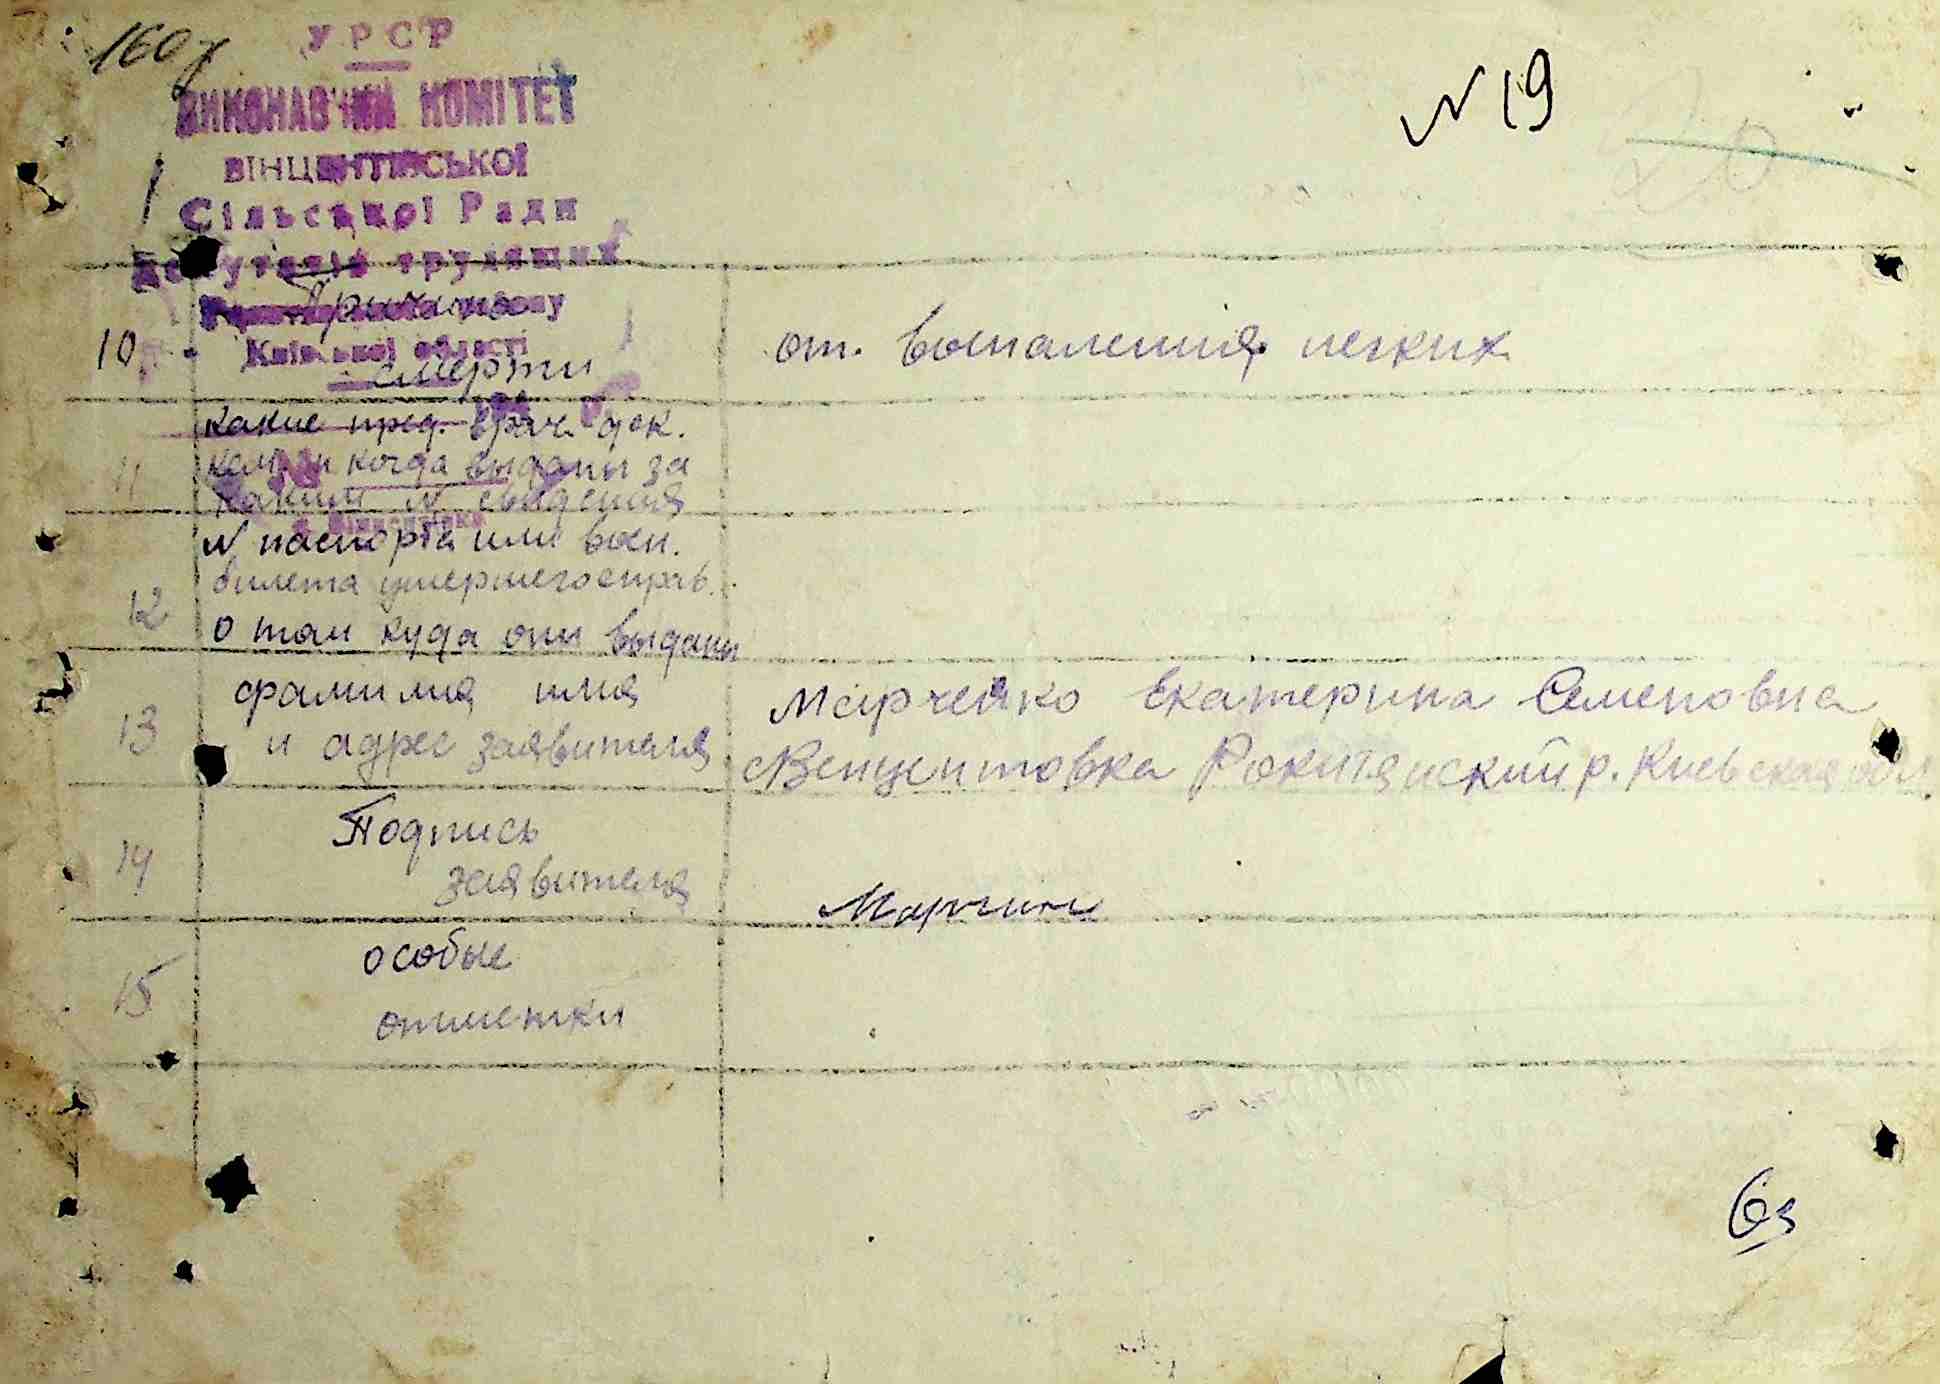 160
УРСР
ВИКОНАВЧИЙ КОМІТЕТ
ВІНЦЕНТІВСЬКОЇ
Сільської Ради
Депутатів трудящих
району
Київської області
N 19
20
10 Причина
смерти
от воспаления легких
11 какие пред. врач. док.
кем и когда выданы за
каким N сведения
12 N паспорта или воен.
билета умершего справ.
о том куда они выданы
13 фамилия имя
и адрес заявителя
Марченко Екатерина Семеновна
с Венцентовка Рокитянский р. Киевская обл.
14 Подпись
заявителя
15 особые
отметки